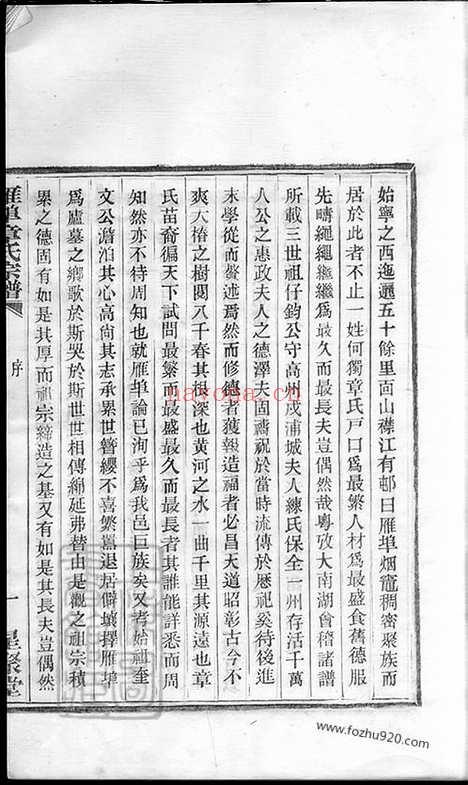 始寧之西迤邐五十餘里面山襟江有邨曰雁埠烟竈稠密聚族而
居於此者不止一姓何獨章氏戶口爲最繁人材爲最盛食舊德服
先疇繩繩繼繼爲最久而最長夫豈偶然哉粵攷大南湖會稽諸譜
所載三世祖仔鈞公守高州戍浦城夫人練氏保全一州存活千萬
人公之惠政夫人之德澤夫固禱祝於當時流傳於歷祀奚待後進
末學從而贅述焉然而修德者獲報造福者必昌天道昭彰古今不
爽大椿之樹閱八千春其根深也黄河之水一曲千里其源遠也章
氏苗裔徧天下試問最繁而最盛最久而最長者其誰能詳悉而周
知然亦不待周知也就雁埠論已洵乎爲我邑巨族矣又考始祖奎
文公澹泊其心高尙其志承累世簪纓不喜繁囂退居僻壤擇雁埠
爲廬墓之鄉歌於斯哭於斯世世相傳綿延弗替由是觀之祖宗積
累之德固有如是其厚而祖宗締造之基又有如是其長夫豈偶然
雁埠章氏宗譜
序
一
星聚堂
nayoga.com
www.fozhu920.com